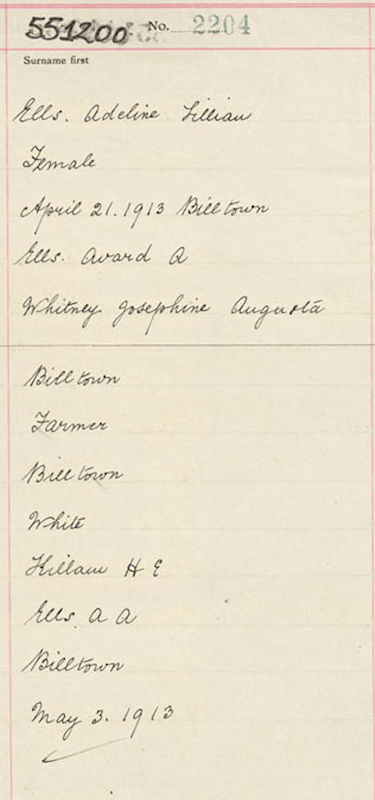 551200 No. 2204
Surname first
Ells. Adeline Lillian
Female
April 21. 1913 Billtown
Ells. Avard A
Whitney Josephine Augusta
Billtown
Farmer
Billtown
White
Killam H E
Ells. A A
Billtown
May 3. 1913